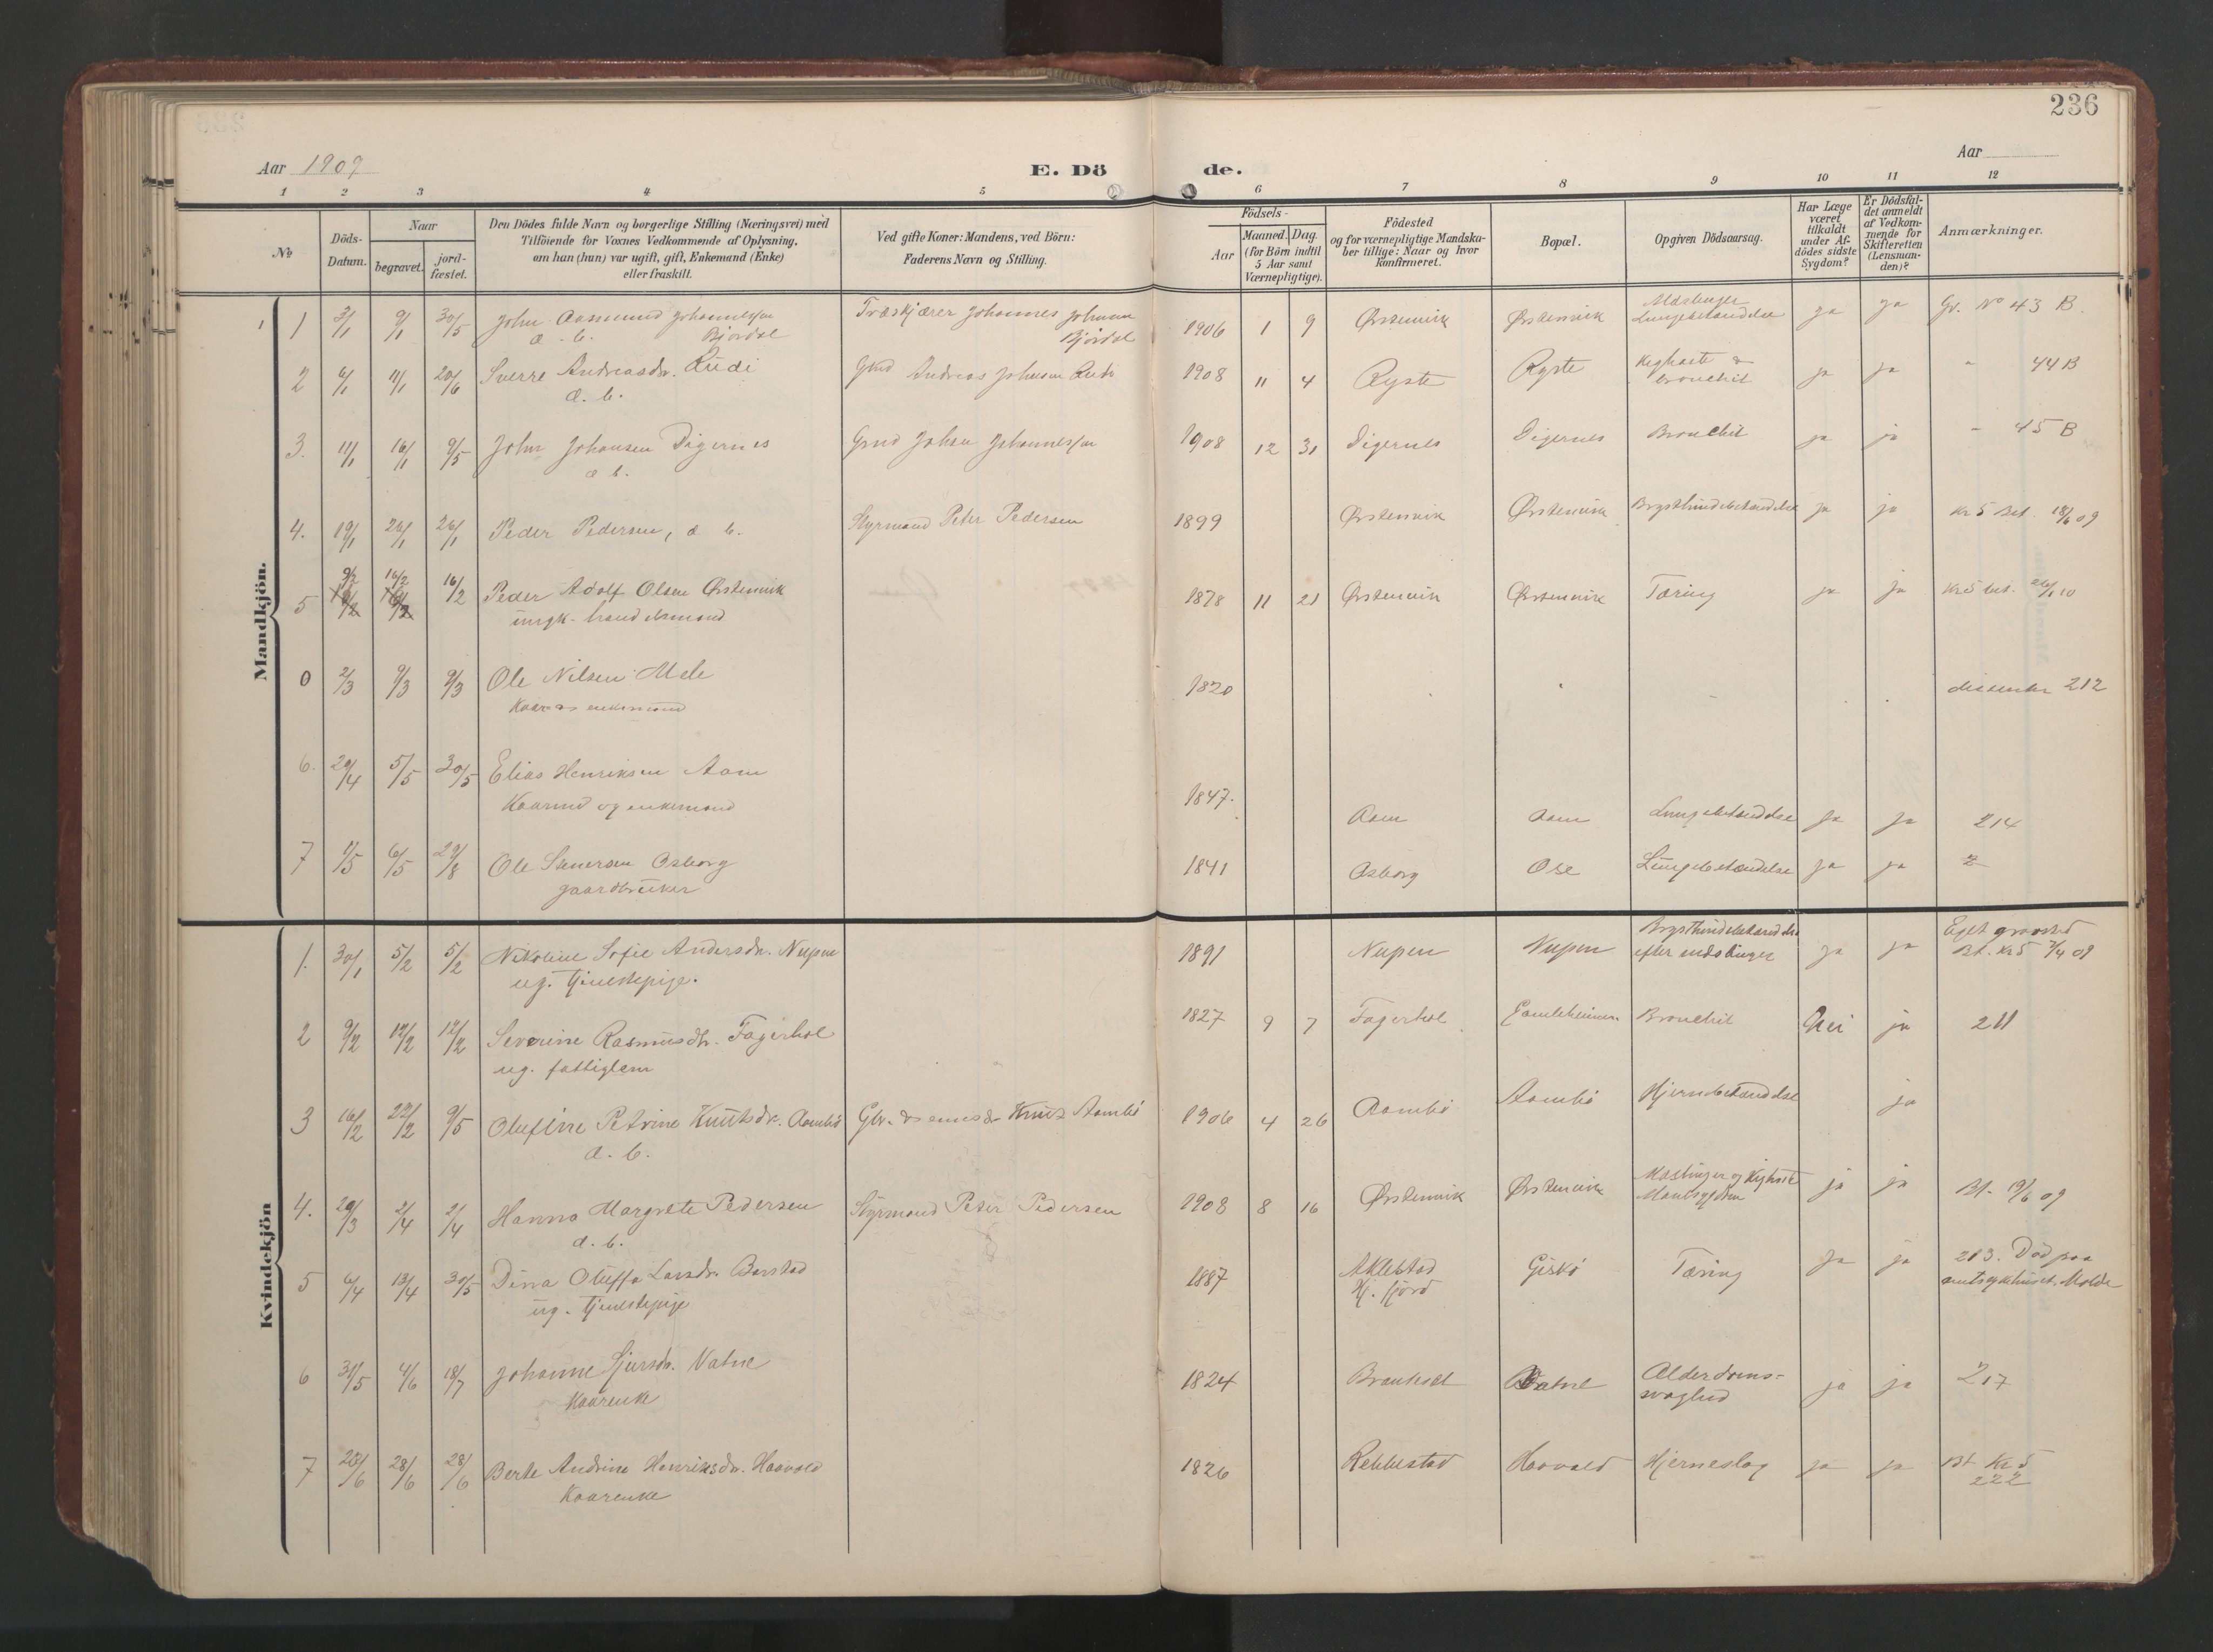 236
Aar 1909
E. Dö
de.
Aar
1 2 3 4 5 6 7 8 9 10 11 12
No
Döds-
Datum.
Naar
begravet.
jord-
fæstet.
Den Dödes fulde Navn og borgerlige Stilling (Næringsvei) med
Tilföiende for Voxnes Vedkommende af Oplysning,
om han (hun) var ugift, gift, Enkemand (Enke)
eller fraskilt.
Ved gifte Koner: Mandens, ved Börn:
Faderens Navn og Stilling.
Födsels-
Aar
Maaned. Dag
(for Börn indtil
5 Aar samt
Værnepligtige).
Födested
og for værnepligtige Mandska-
ber tillige: Naar og hvor
konfirmeret.
Bopæl.
Opgiven Dödsaarsag.
Har Læge
været
tilkaldt
under Af-
dödes sidste
Sygdom?
Er Dödsfal-
det anmeldt
af Vedkom-
mende for
Skifteretten
(Lensman-
den)?
Anmærkninger.
Mandkjön.
1 3/1 9/1 30/5 John Aasmund Johannessen Træskjærer Johannes Johnsen 1906 1 9 Ørstenvik Ørstenvik Mæslinger ja ja Gr. No 43 B.
d. b. Bjørdal Bjørdal Lungebetændelse
2 6/1 11/1 20/6 Sverre Andreasdr. Rudi Gmd Andreas Johnsen 1908 11 4 Ryste Ryste Kighoste & ja ja " 44 B
d. b. bronchit
3. 11/1 16/1 9/5 John Johansen Digernes Gmd Johan Johannessen 1908 12 31 Digernes Digernes Bronchit ja ja - 45 B
d b.
4. 19/1 26/1 26/1 Peder Pedersen, d b. Styrmand Peter Pedersen 1899 Ørstenvik Ørstenvik Brysthindebetændelse ja ja Kr 5 Bet. 18/6 09
9/2 16/2
5 16/2 Peder Adolf Olsen Ørstenvik 1878 11 21 Ørstenvik Ørstenvik Tæring ja ja Kr 5 bet. 26/1 10
ungk. handelsmand
0 2/3 9/3 9/3 Ole Nilsen Mele 1820 dissenter 212
enkemand
6. 29/4 5/5 30/5 Elias Henriksen Aam 1847. Aam Aam Lungebetændelse ja ja 214
Kaarmd og enkemand
7 1/5 6/5 29/8 Ole Osborg 1841 Osborg Ose Lungebetændelse ja ja
gaardbruker
Kvindekjön
1. 30/1 5/2 5/2 Nikoline Sofie Andersdr. Nupen 1891 Nupen Nupen Brysthindebetændelse ja ja Eget gravsted
ug. tjenestepige. efter mæslinger Bt. Kr 5 7/4 09
2 9/2 17/2 17/2 Severine Rasmusdtr. Fagerhol 1827 9 7 Fagerhol Gamleheimen. Bronchit Nei ja 211
ug. fattiglem
3 16/2 22/2 9/5 Olufine Petrine Knutsdr. Aambø Knut Aambø 1906 4 26 Aambø Aambø Hjernebetændelse ja
d. b.
4. 29/3 2/4 2/4 Hanna Margrete Pedersen Styrmand Peter Pedersen 1908 8 16 Ørstenvik Ørstenvik Mæslinger og Kighoste ja ja Bt. 19/6 09
d. b.
5 6/4 13/4 30/5 Dina Oluffa Larsdr. Barstad 1887 Aklestad Giskø Tæring ja ja 213. Död paa
ug. tjenestepige Hj. fjord amtsykehuset. Molde
6 31/5 4/6 18/7 Johanne Sjursdr. Vatne 1824 Brauteset Vatne Alderdoms- ja ja 217
Kaarenke svaghed
7 23/6 28/6 28/6 Berte Andrine Henriksdr. Haavold 1826 Rekkestad Haavold Hjerneslag ja ja Bt Kr 5
Kaarenke 222